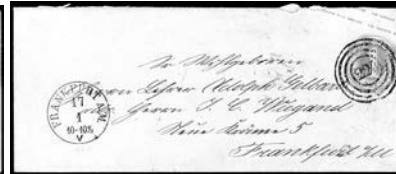 FRANKFURT A.M.
17
1
10-10½
V
Sr Wohlgeboren
Herrn Lehrer Adolph
Herrn I. C. Wiegand
Neue Kräme 5
Frankfurt